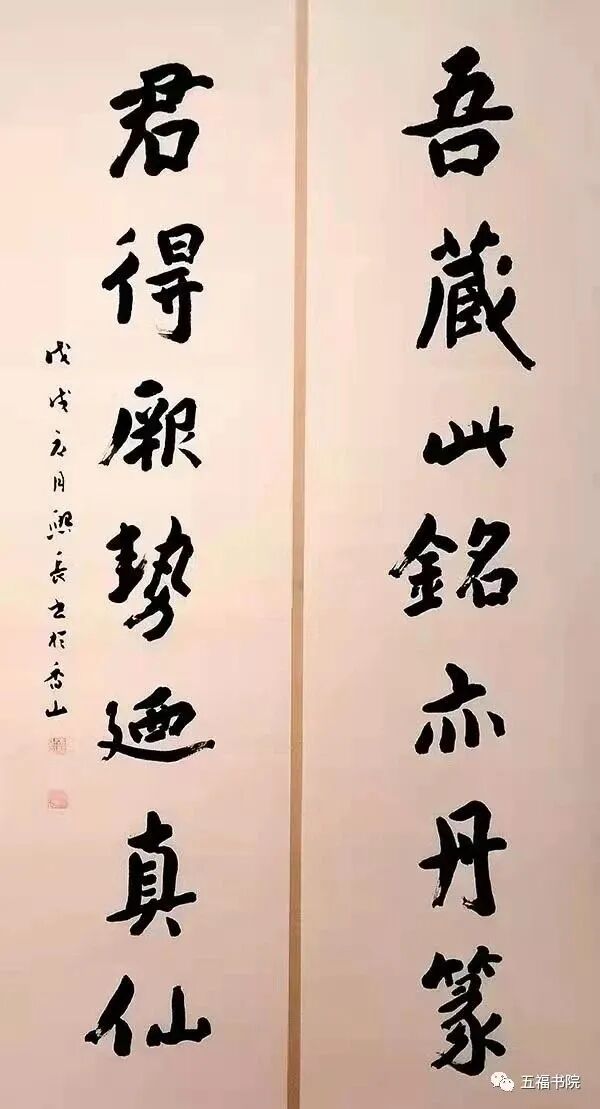 吾藏此銘亦丹篆
君得厥勢廼真仙
戊戌月興長书於香山
五福书院